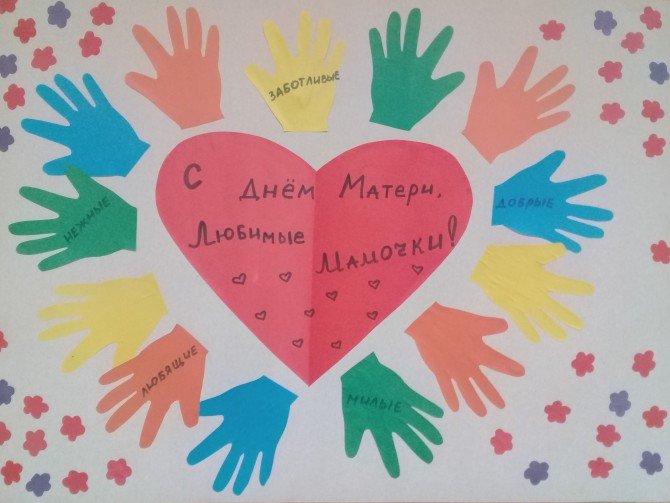 ЗАБОТЛИВЫЕ
НЕЖНЫЕ
ДОБРЫЕ
С Днём Матери,
Любимые Мамочки!
ЛЮБЯЩИЕ
МИЛЫЕ